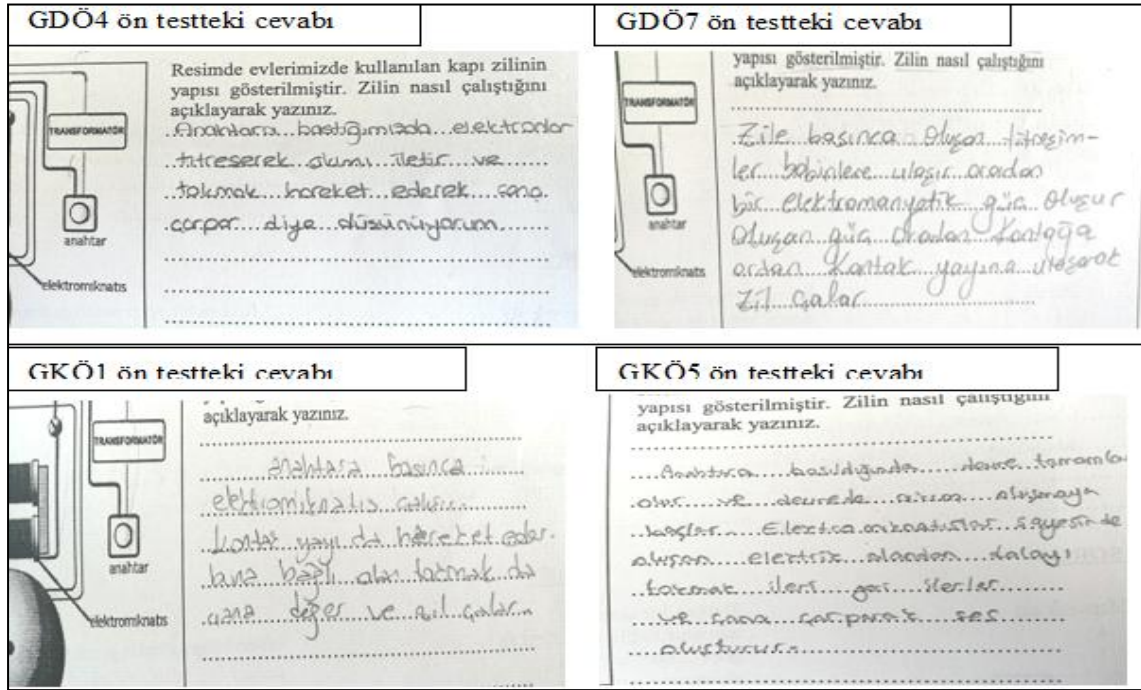 GDÖ4 ön testteki cevabı
TRANSFORMATÖR
anahtar
elektromıknatıs
Resimde evlerimizde kullanılan kapı zilinin
yapısı gösterilmiştir. Zilin nasıl çalıştığını
açıklayarak yazınız.
Anahtara bastığımızda elektronlar
titreşerek akımı iletir ve
tokmak hareket ederek çana
çarpar diye düşünüyorum
GDÖ7 ön testteki cevabı
TRANSFORMATÖR
anahtar
elektromıknatıs
yapısı gösterilmiştir. Zilin nasıl çalıştığını
açıklayarak yazınız.
Zile basınca oluşan titreşim-
ler bobinlere ulaşır oradan
bir elektromanyetik güç oluşur
Oluşan güç oradan kontağa
ordan kontak yayına ulaşarak
Zil çalar
GKÖ1 ön testteki cevabı
TRANSFORMATÖR
anahtar
elektromıknatıs
açıklayarak yazınız.
anahtara basınca
elektromıknatıs çalışır.
kontak yayı da hareket eder.
buna bağlı olan tokmak da
çana değer ve zil çalar.
GKÖ5 ön testteki cevabı
yapısı gösterilmiştir. Zilin nasıl çalıştığını
açıklayarak yazınız.
Anahtara basıldığında devre
olur ve devrede oluşmaya
başlar. sayesinde
oluşan elektrik alandan dolayı
tokmak ileri geri ilerler
ve çana çarparak ses
oluşturur.